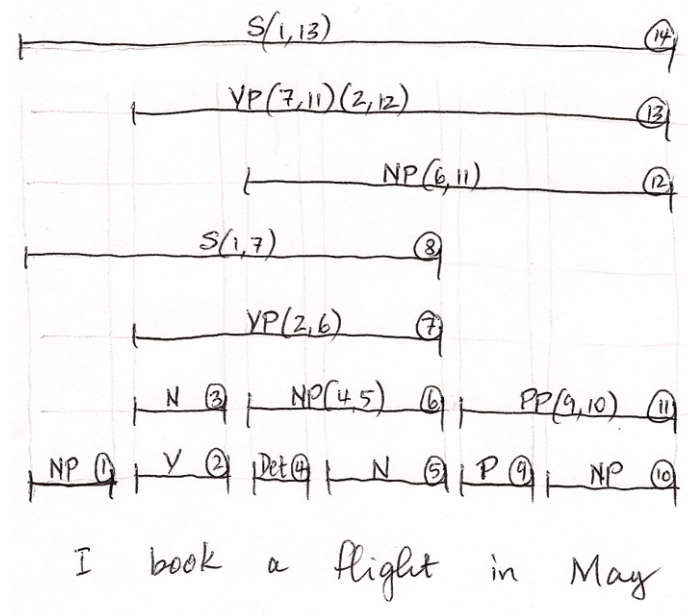 S(1,13) 14
VP(7,11)(2,12) 13
NP(6,11) 12
S(1,7) 8
VP(2,6) 7
N 3 NP(4,5) 6 PP(9,10) 11
NP 1 V 2 Det 4 N 5 P 9 NP 10
I book a flight in May